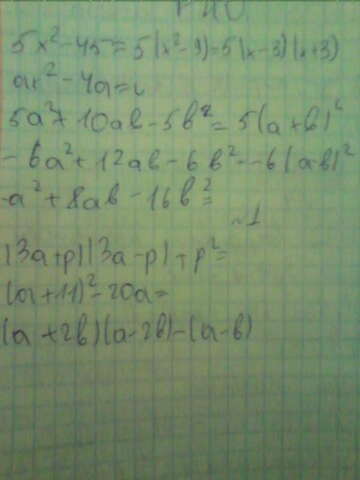 5x²-45=5(x²-9)=5(x-3)(x+3)
ax²-4a=
5a²+10ab-5b²=5(a+b)²
-6a²+12ab-6b²=-6(a-b)²
-a²+8ab-16b²=
~1
(3a+p)(3a-p)+p²=
(a+11)²-20a=
(a+2b)(a-2b)-(a-b)